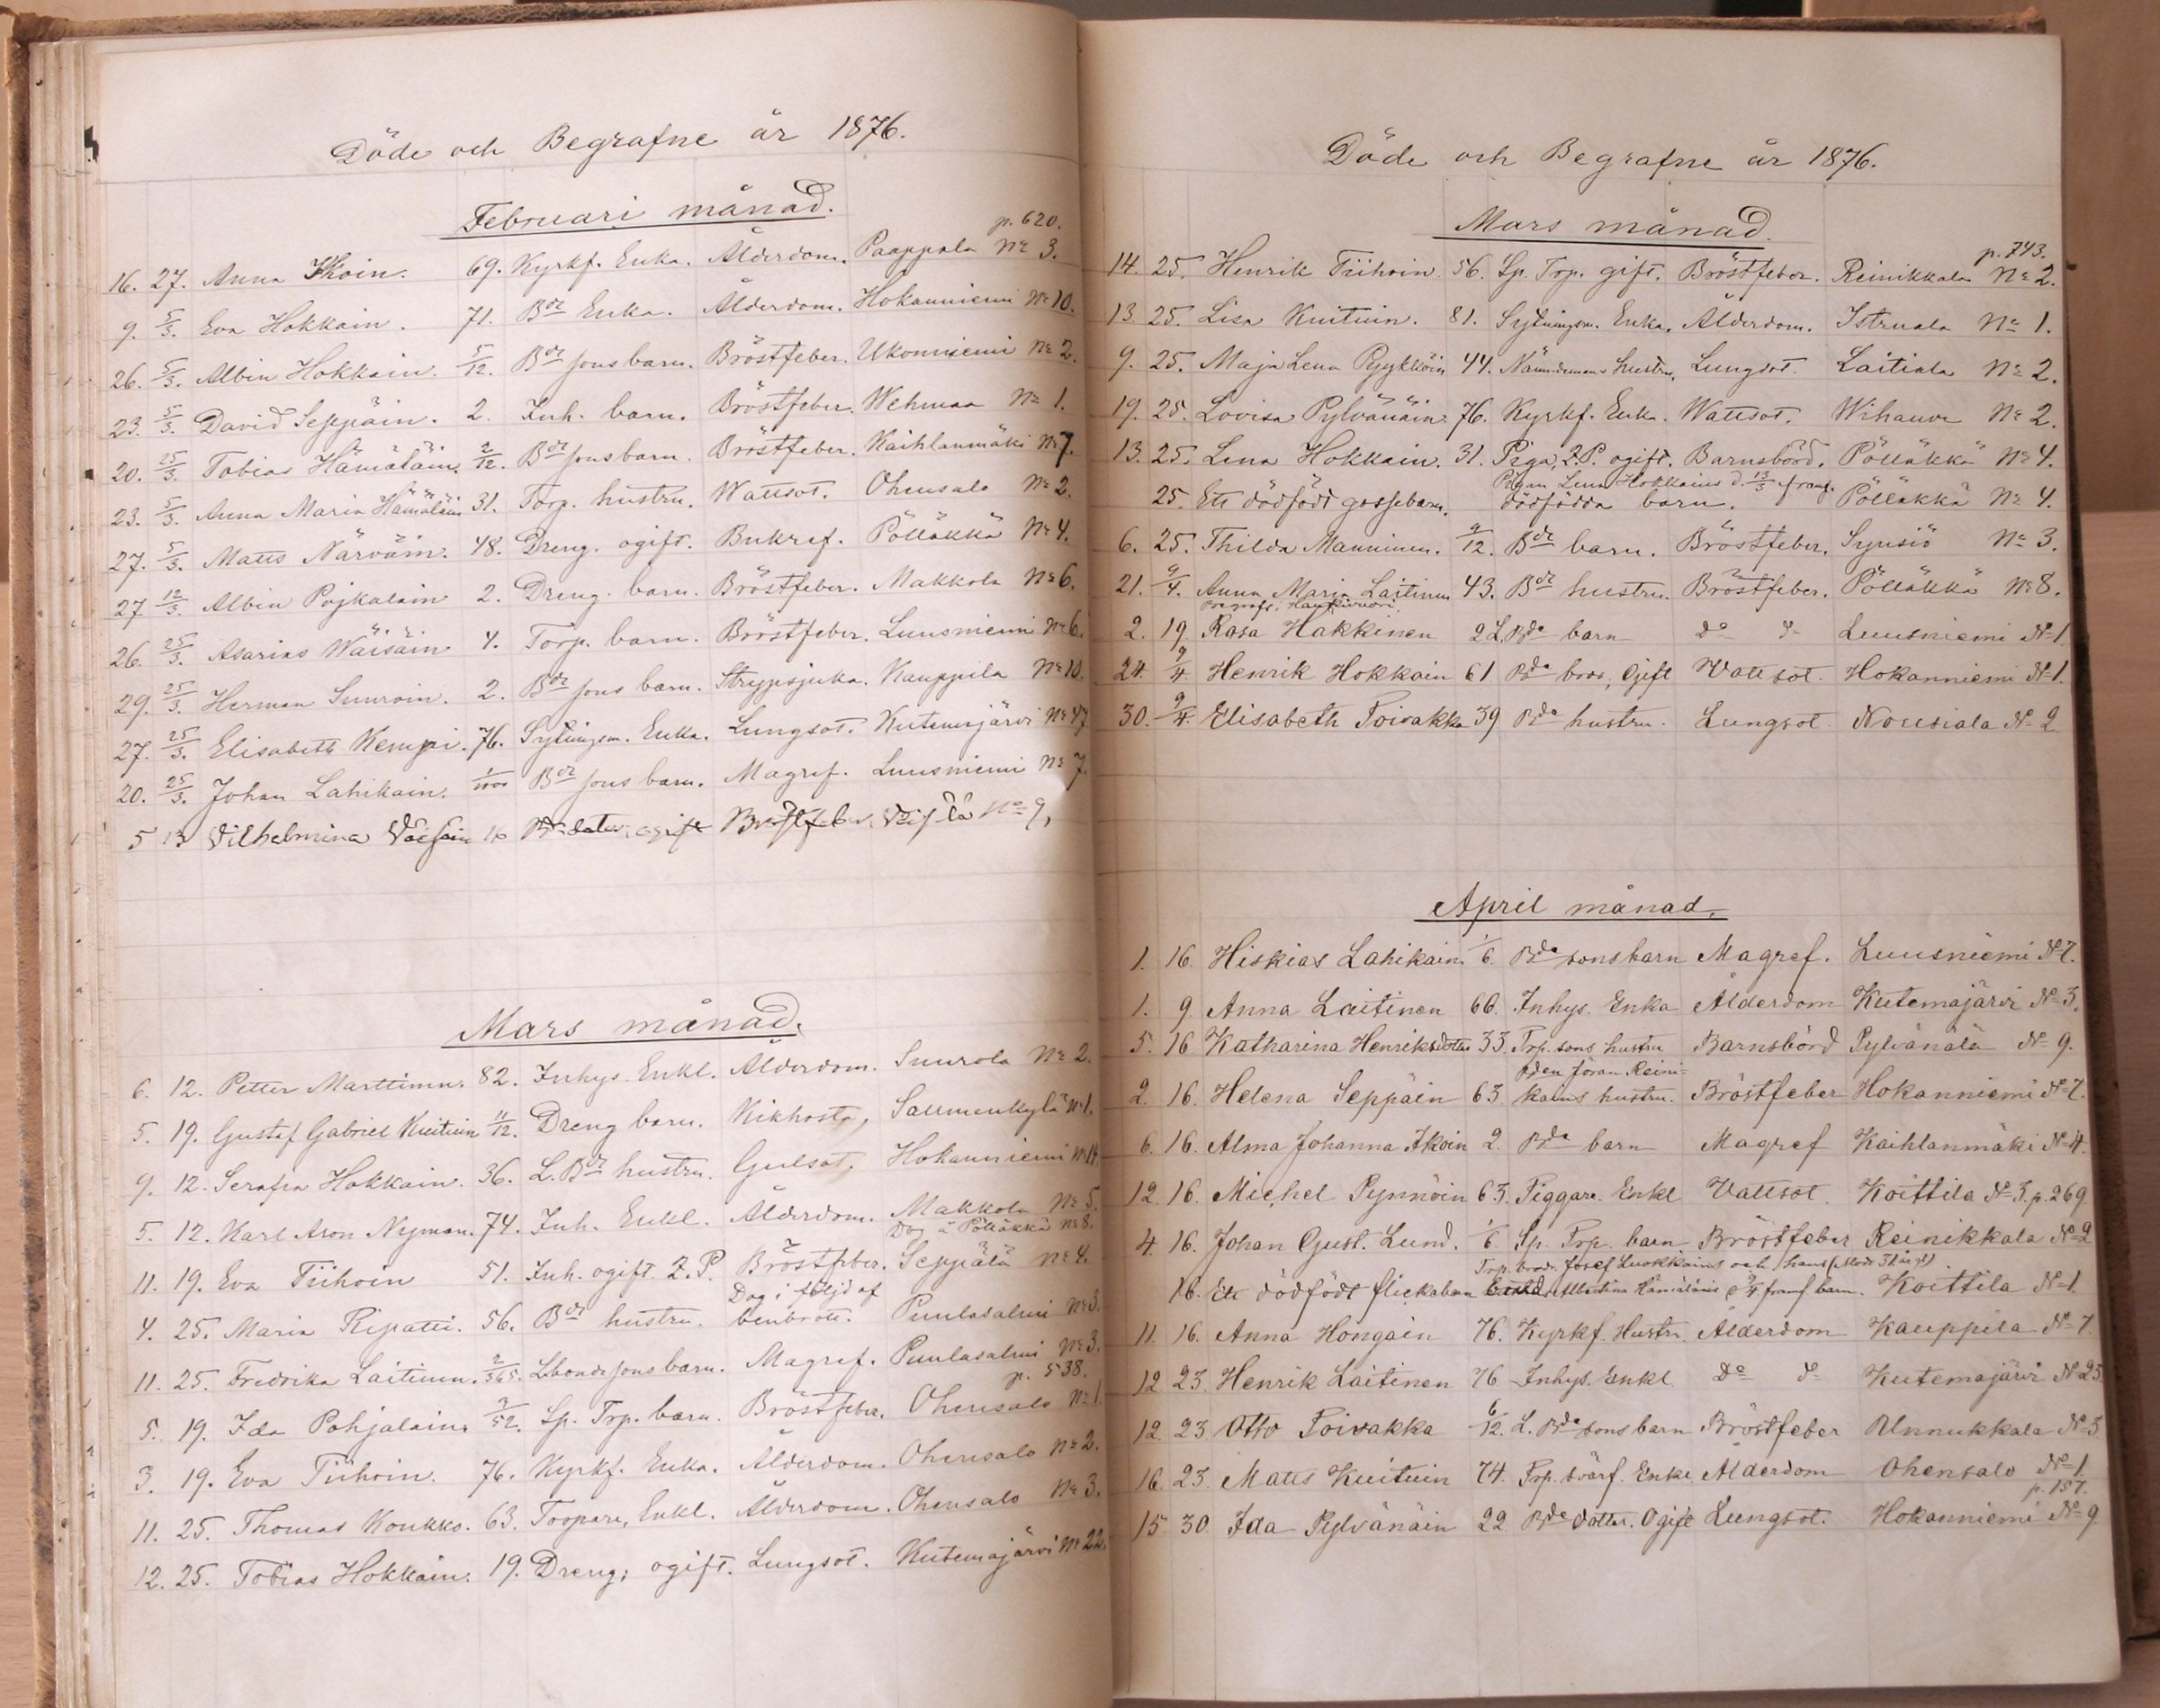 Döde och Begrafne år 1876.
Februari månad.
p. 620.
16. 27. Anna Ikoin. 69. Kyrkf. Enka. Ålderdom. Paappala No 3.
9. 5/3. Eva Hokkain. 71. Bdr Enka. Ålderdom. Hokanniemi No 10.
26. 5/3. Albin Hokkain. 5/12. Bdr sons barn. Bröstfeber. Ukonniemi No 2.
23. 5/3. David Seppäin. 2. Inh. barn. Bröstfeber. Wehmaa No 1.
20. 25/3. Tobias Hämäläin. 2/12. Bdr sonsbarn. Bröstfeber. Kaihlanmäki No 7.
23. 5/3. Anna Maria Hämäläin 31. Torp. hustru. Wattsot. Ohensalo No 2.
27. 5/3. Matts Närväin. 48. Dreng. ogift. Bukref. Pölläkkä No 4.
27 12/3. Albin Pojkalain 2. Dreng. barn. Bröstfeber. Makkola No 6.
26. 25/3. Asarias Wäisäin 4. Torp. barn. Bröstfeber. Luusniemi No 6.
29. 25/3. Herman Suuroin. 2. Bdr sons barn. Strypsjuka. Kauppila No 10.
27. 25/3. Elisabeth Kempi. 76. Sytningsm. Enka. Lungsot. Kutemajärvi No 47
20. 25/3. Johan Lahikain. Bdr sons barn. Magref. Luusniemi No 7.
5 13 Vilhelmina 16 dotter, ogift Bröstfeber No 9,
Mars månad.
6. 12. Petter Marttinen. 82. Inhys Enkl. Ålderdom. Suurola No 2.
5. 19. Gustaf Gabriel Kuituin 11/12. Dreng barn. Kikhosta, Saumenkylä No 1.
9. 12. Serafia Hokkain. 36. L. Bdr hustru. Gulsot, Hokanniemi No 14
5. 12. Karl Aron Nyman. 74. Inh. Enkl. Ålderdom. Makkola No 5.
Dog å Pölläkkä No 8.
11. 19. Eva Tiihoin 51. Inh. ogift Q. P. Bröstfeber. Seppälä No 4.
Dog i följd af
4. 25. Maria Ripatti. 56. Bdr hustru. benbrott. Puulasalmi No 3.
11. 25. Fredrika Laitinen. 2/365. Lbonde sons barn. Magref. Puulasalmi No 3.
p. 538.
5. 19. Ida Pohjalain. 3/52. Sp. Trp. barn. Bröstfeber. Ohensalo No 1
3. 19. Eva Tiihoin. 76. Kyrkf. Enka. Ålderdom. Ohensalo No 2.
11. 25. Thomas Koukko. 63. Torpare, Enkl. Ålderdom. Ohensalo No 3.
12. 25. Tobias Hokkain. 19. Dreng; ogift. Lungsot. Kutemajärvi No 22.
Döde och Begrafne år 1876.
Mars månad.
p. 743.
14. 25. Henrik Tiihoin 56. Sp. Trp. gift. Bröstfeber. Reinikkala No 2.
13. 25. Lisa Kuituin. 81. Sytningsm. Enka. Ålderdom. Istruala No 1.
9. 25. Maja Lena Pyykköin 44. Nämndemans hustru. Lungsot. Laitiala No 2.
19. 25. Lovisa Pylvänäin. 76. Kyrkf. Enk. Wattsot. Wihavu No 2.
13. 25. Lena Hokkain. 31. Piga, Q.P. ogift. Barnsbörd. Pölläkkä No 4.
Pigan Lena Hokkains d. 13/3 framf.
25. Ett dödfödt gossebarn. dödfödda barn. Pölläkkä No 4.
6. 25. Thilda Manninen. 9/12. Bdr barn. Bröstfeber. Synsiö No 3.
21. 9/4. Anna Maria Laitinen 43. Bdr hustru. Bröstfeber. Pölläkkä No 8.
begrafs i Haukivuori.
2. 19. Rosa Hakkinen 2 L. Bde barn do do Luusniemi No 1
24. 9/4 Henrik Hokkain 61 Bde bror, Gift Vattsot. Hokanniemi No 1.
30. 9/4. Elisabeth Toivakka 39 Bde hustru. Lungsot Nousiala No 2
April månad.
1. 16. Hiskias Lahikain. 1/6. Bde sonsbarn Magref. Luusniemi No 7.
1. 9. Anna Laitinen 66. Inhys. Enka Ålderdom Kutemajärvi No 3.
5. 16 Katharina Henriksdotter 33. Trp. sons hustru Barnsbörd Pylvänälä No 9.
Bden Jöran Reini-
2. 16. Helena Seppäin 63. kains hustru. Bröstfeber Hokanniemi No 7.
6. 16. Alma Johanna Ikoin 2. Bde barn Magref Kaihlanmäki No 4.
12. 16. Michel Pynnöin 63. Tiggare. Enkl Vattsot. Koittila No 3. p. 269
4. 16. Johan Gust. Lund. 1/6. Sp. Trp. barn Bröstfeber Reinikkala No 2
Trp. brodr. Josef Luokkains och hans (Moder 31 årgl)
16. Ett dödfödt flickabarn Albertina Hämäläinis 9/4 framf barn. Koittila No 1.
11. 16. Anna Hongain 76. Kyrkf. Hustru. Ålderdom Kauppila No 7.
12. 23. Henrik Laitinen 76 Inhys. Enkl. do do Kutemajärvi No 25.
12 23. Otto Toivakka 6/12. L. Bde sons barn Bröstfeber Annukkala No 3
16. 23. Matts Kuituin 74. Trp. svärf. Enkl. Ålderdom Ohensalo No 1.
p. 157.
15. 30. Ida Pylvänäin 22. Bde dotter. Ogift Lungsot. Hokanniemi No 9